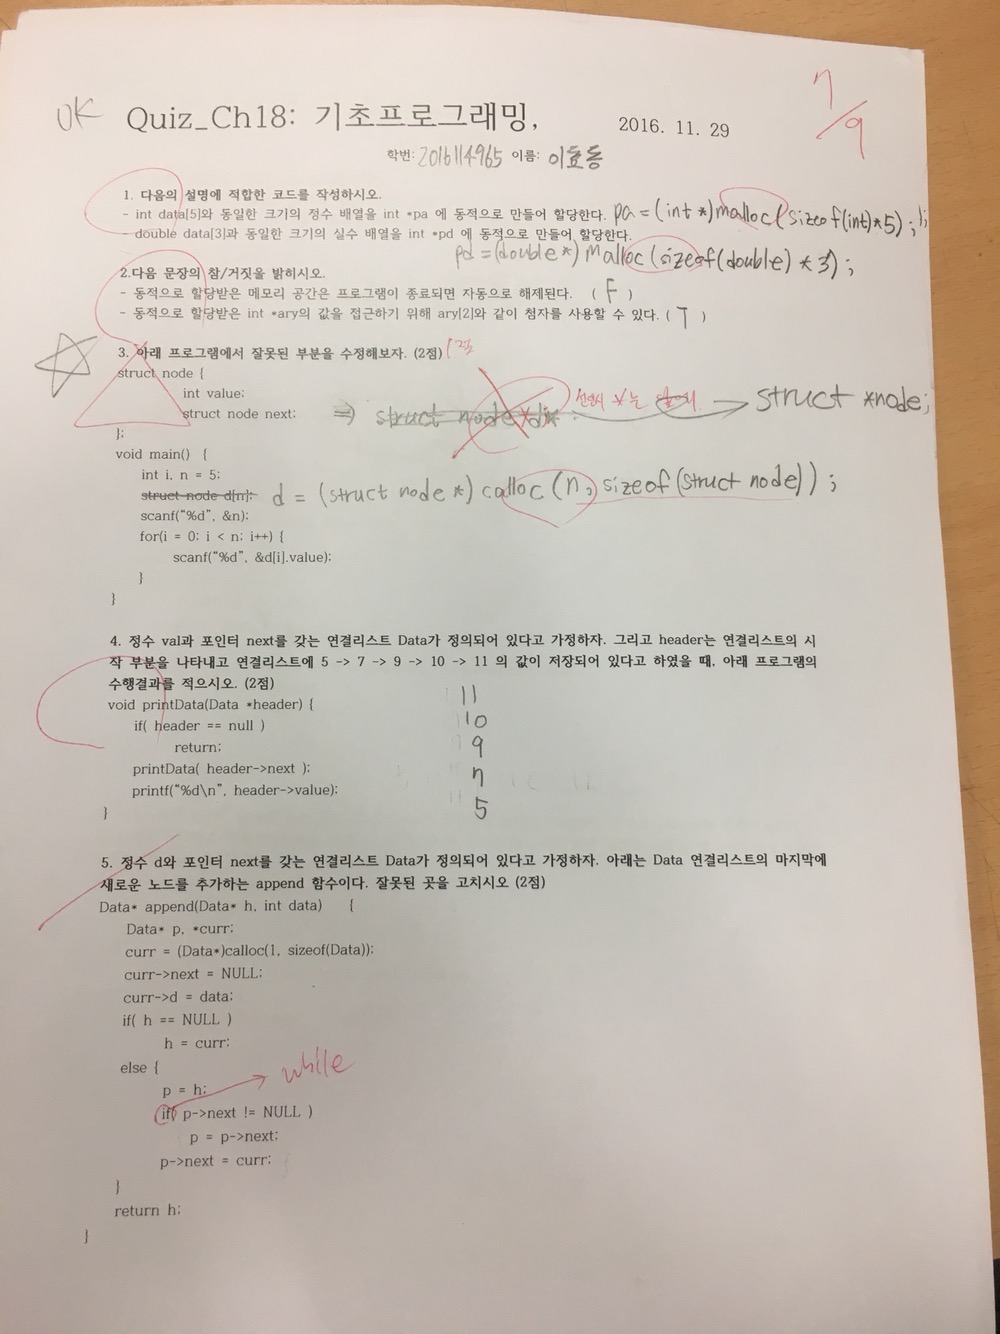 OK
7/9
Quiz_Ch18: 기초프로그래밍,
2016. 11. 29
학번: 2016114965 이름: 이효동
1. 다음의 설명에 적합한 코드를 작성하시오.
- int data[5]와 동일한 크기의 정수 배열을 int *pa 에 동적으로 만들어 할당한다. pa = (int *) malloc (sizeof(int)*5) ;
- double data[3]과 동일한 크기의 실수 배열을 int *pd 에 동적으로 만들어 할당한다.
pd = (double *) malloc (sizeof(double) * 3) ;
2.다음 문장의 참/거짓을 밝히시오.
- 동적으로 할당받은 메모리 공간은 프로그램이 종료되면 자동으로 해제된다. ( F )
- 동적으로 할당받은 int *ary의 값을 접근하기 위해 ary[2]와 같이 첨자를 사용할 수 있다. ( T )
3. 아래 프로그램에서 잘못된 부분을 수정해보자. (2점) 1점
struct node {
int value;
struct node next; ⇒ struct node *d; 선언시 *는 → struct *node;
};
void main() {
int i, n = 5;
struct node d[n]; d = (struct node *) calloc (n, sizeof(struct node)) ;
scanf("%d", &n);
for(i = 0; i < n; i++) {
scanf("%d", &d[i].value);
}
}
4. 정수 val과 포인터 next를 갖는 연결리스트 Data가 정의되어 있다고 가정하자. 그리고 header는 연결리스트의 시
작 부분을 나타내고 연결리스트에 5 -> 7 -> 9 -> 10 -> 11 의 값이 저장되어 있다고 하였을 때, 아래 프로그램의
수행결과를 적으시오. (2점)
void printData(Data *header) { 11
if( header == null ) 10
return; 9
printData( header->next ); 7
printf("%d\n", header->value); 5
}
5. 정수 d와 포인터 next를 갖는 연결리스트 Data가 정의되어 있다고 가정하자. 아래는 Data 연결리스트의 마지막에
새로운 노드를 추가하는 append 함수이다. 잘못된 곳을 고치시오 (2점)
Data* append(Data* h, int data) {
Data* p, *curr;
curr = (Data*)calloc(1, sizeof(Data));
curr->next = NULL;
curr->d = data;
if( h == NULL )
h = curr;
else {
p = h; → while
if( p->next != NULL )
p = p->next;
p->next = curr;
}
return h;
}